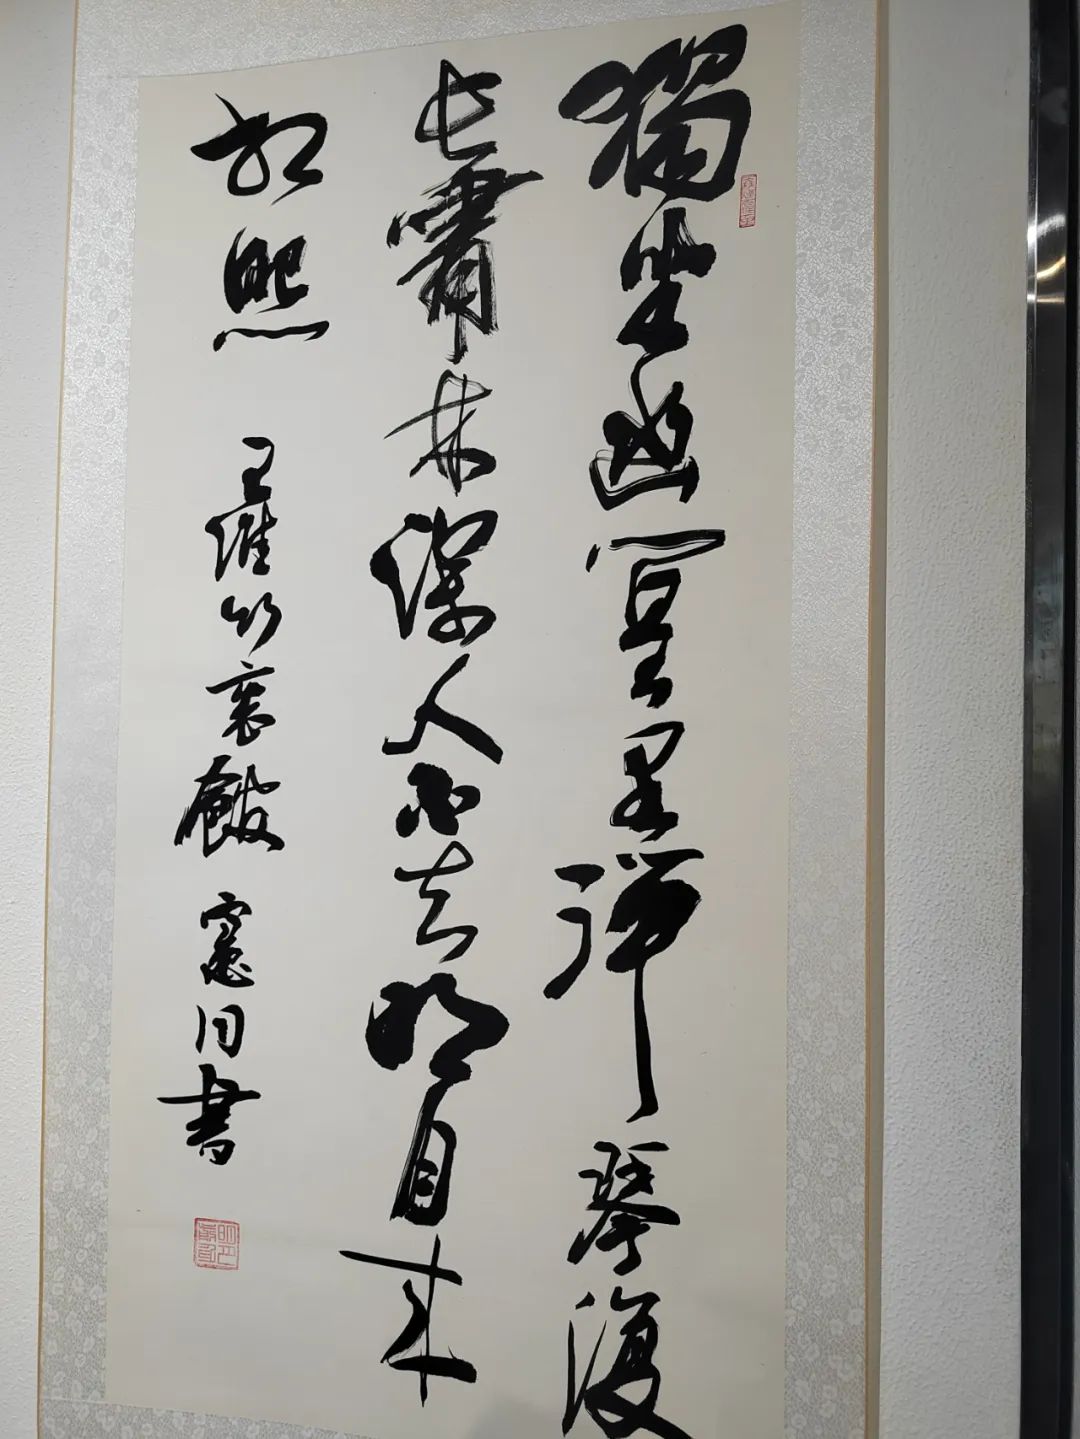 獨坐幽篁里彈琴復
長嘯林深人不知明月来
相照 王維竹裏館 書